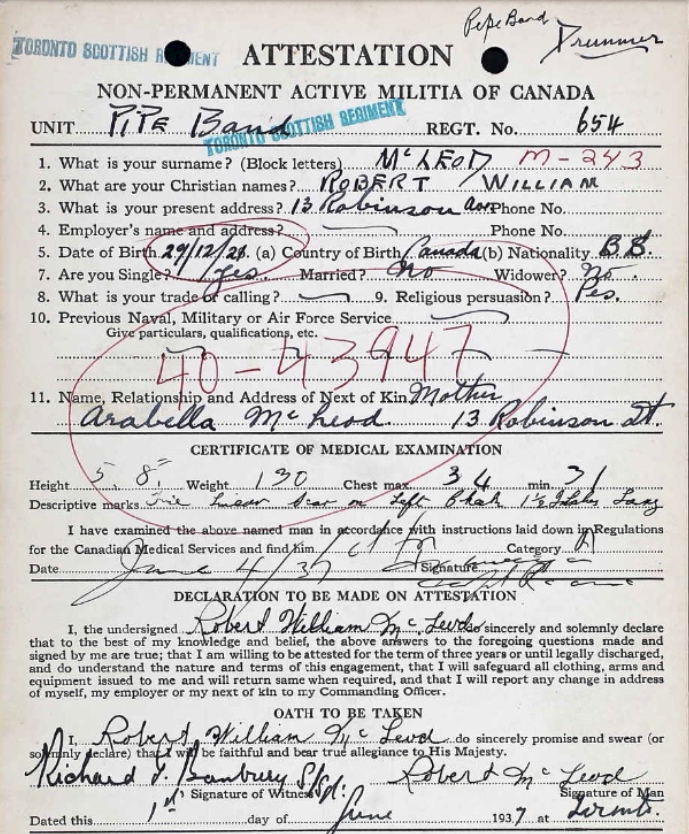 Pipe Band
Drummer
TORONTO SCOTTISH REGIMENT
ATTESTATION
NON-PERMANENT ACTIVE MILITIA OF CANADA
UNIT PIPE Band REGT. No. 654
TORONTO SCOTTISH REGIMENT
1. What is your surname? (Block letters) McLEOD M-243
2. What are your Christian names? ROBERT WILLIAM
3. What is your present address? 13 Robinson Ave Phone No.
4. Employer's name and address? Phone No.
5. Date of Birth 29/12/21. (a) Country of Birth Canada (b) Nationality B.B.
7. Are you Single? Yes. Married? No Widower? No
8. What is your trade or calling? 9. Religious persuasion? Pes.
10. Previous Naval, Military or Air Force Service
Give particulars, qualifications, etc.
40-43947
11. Name, Relationship and Address of Next of Kin Mother
Arabella McLeod 13 Robinson St.
CERTIFICATE OF MEDICAL EXAMINATION
Height 5. 8. Weight 130 Chest max. 34 min. 31
Descriptive marks scar on Left 1½ Long
I have examined the above named man in accordance with instructions laid down in Regulations
for the Canadian Medical Services and find him Category A
Date June 4/37 Signature
DECLARATION TO BE MADE ON ATTESTATION
I, the undersigned Robert William McLeod do sincerely and solemnly declare
that to the best of my knowledge and belief, the above answers to the foregoing questions made and
signed by me are true; that I am willing to be attested for the term of three years or until legally discharged,
and do understand the nature and terms of this engagement, that I will safeguard all clothing, arms and
equipment issued to me and will return same when required, and that I will report any change in address
of myself, my employer or my next of kin to my Commanding Officer.
OATH TO BE TAKEN
I, Robert William McLeod do sincerely promise and swear (or
solemnly declare) that I will be faithful and bear true allegiance to His Majesty.
Richard J. Banbury Robert McLeod
Signature of Witness Signature of Man
Dated this 1st day of June 1937 at Toronto.